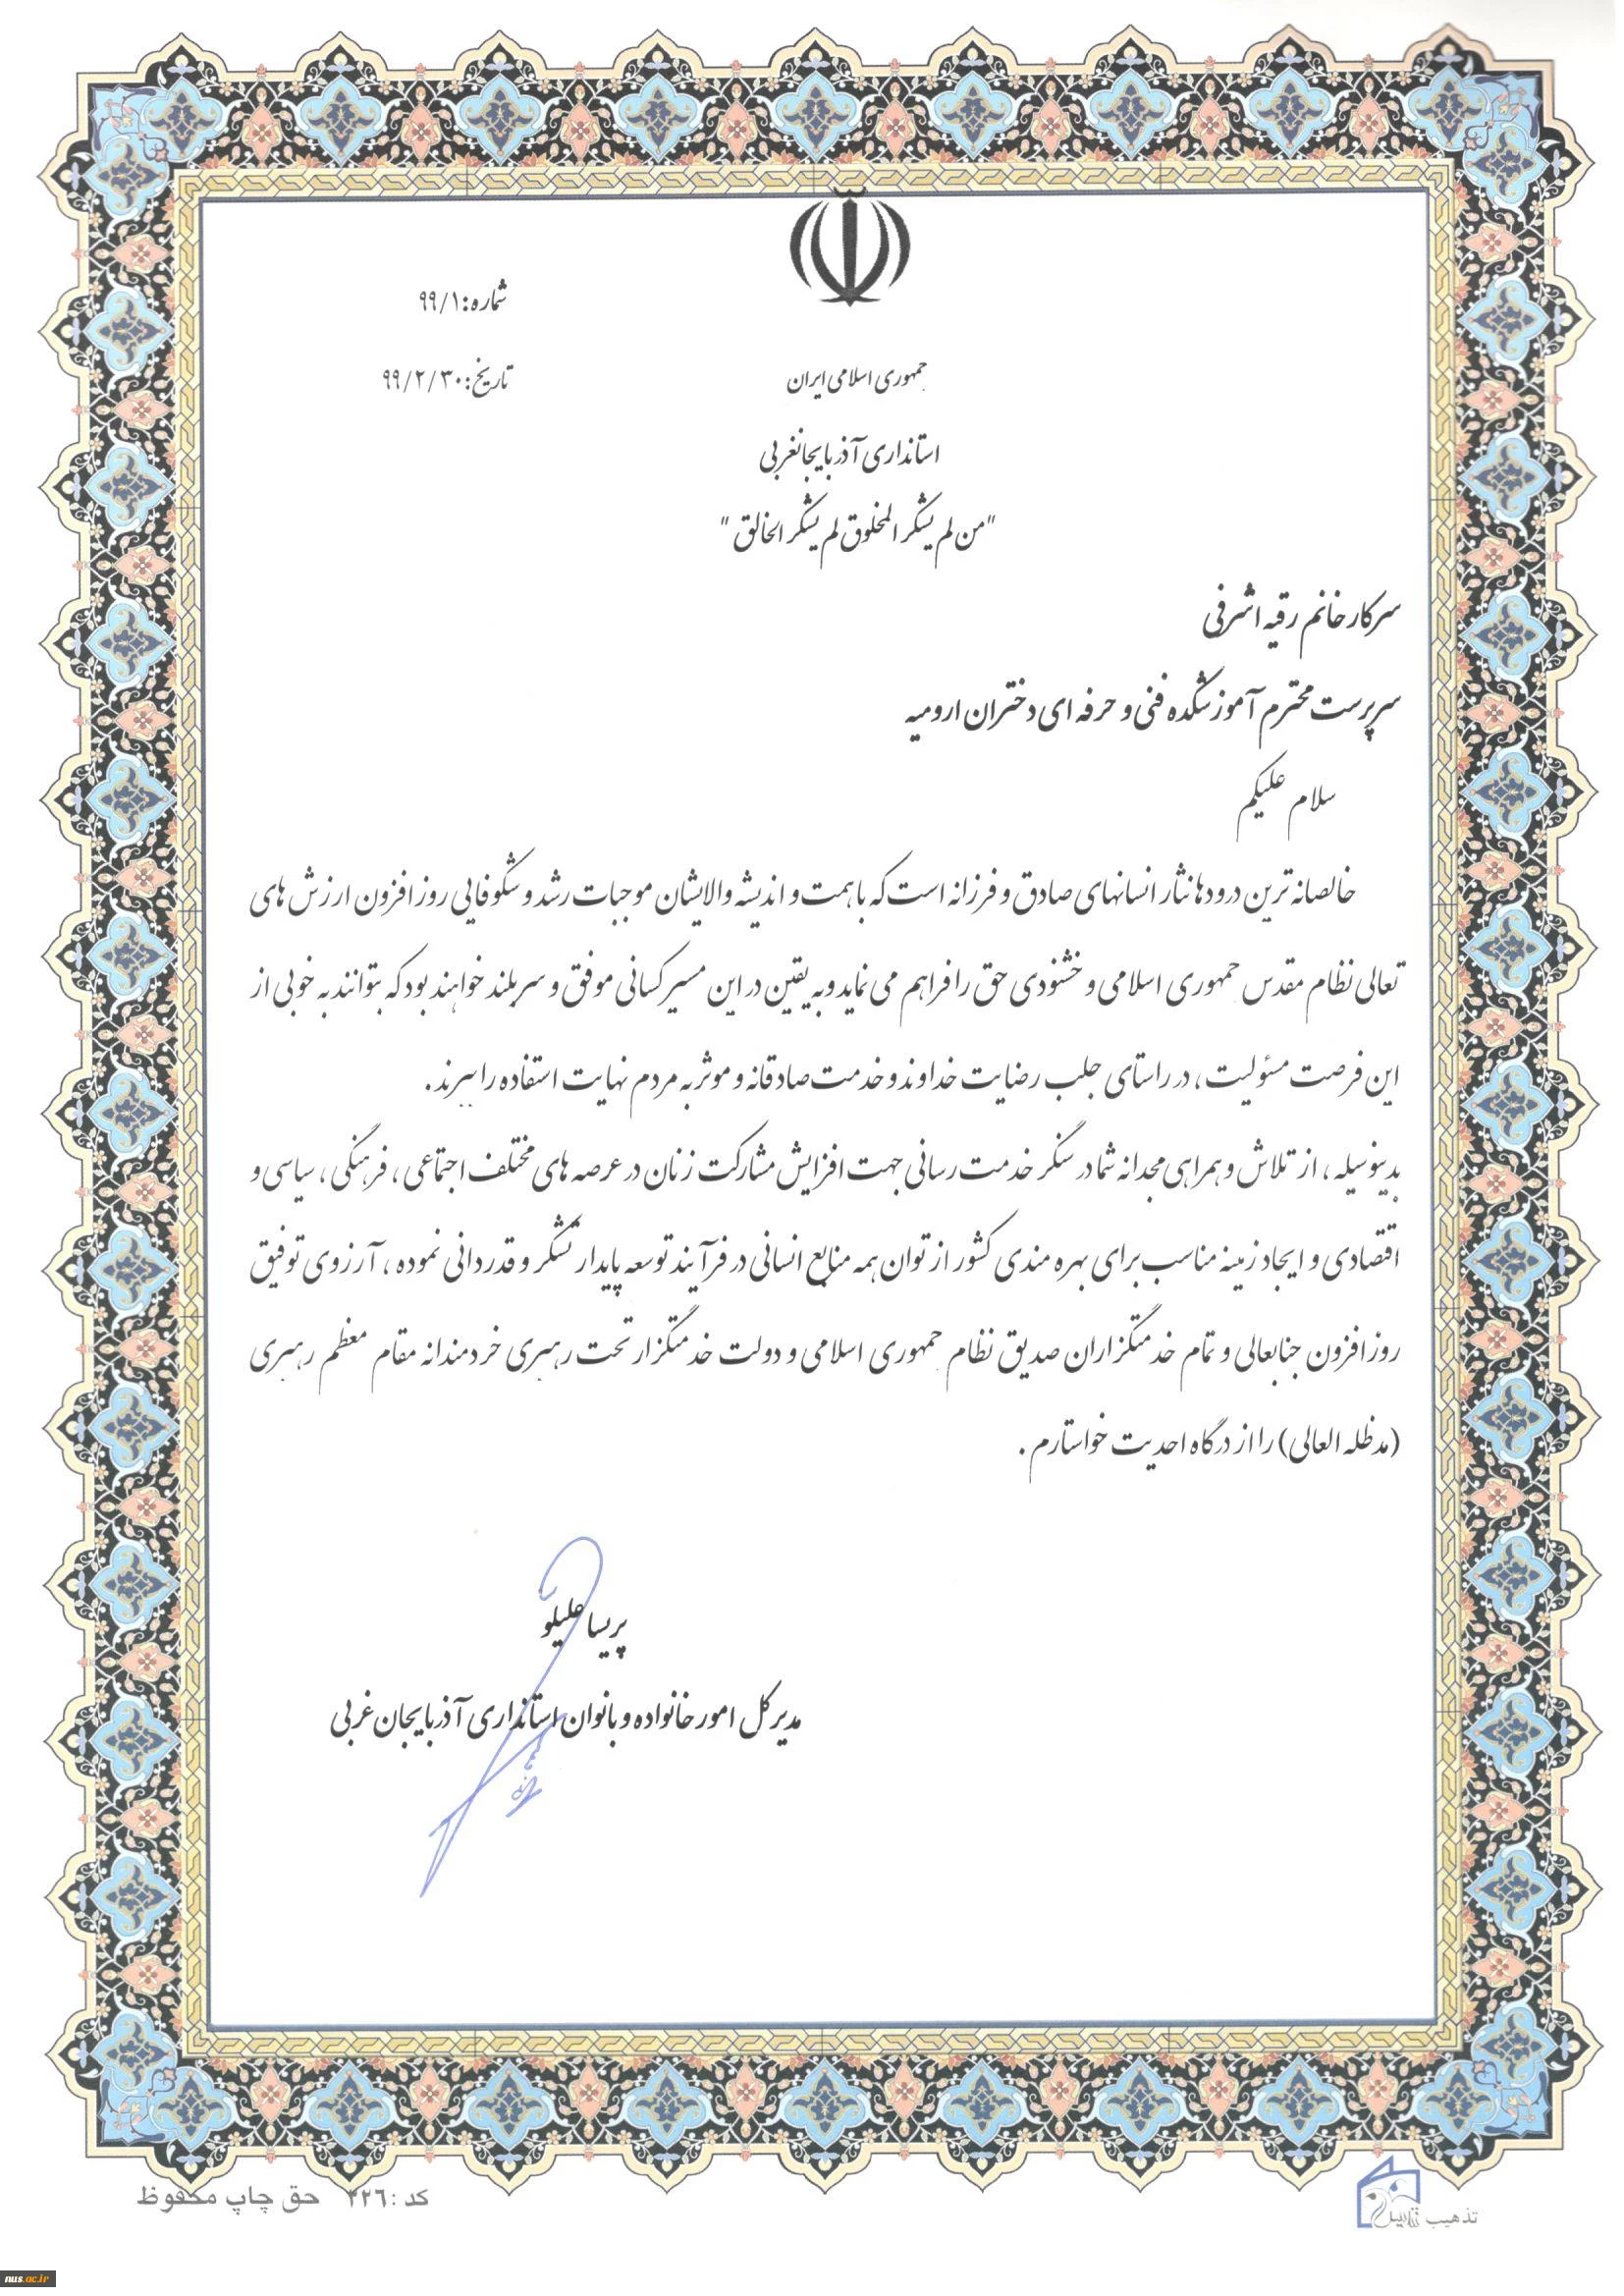 شماره: ۹۹/۱
تاریخ: ۹۹/۲/۳۰
جمهوری اسلامی ایران
استانداری آذربایجانغربی
"من لم یشکر المخلوق لم یشکر الخالق"
سرکار خانم رقیه اشرفی
سرپرست محترم آموزشکده فنی و حرفه ای دختران ارومیه
سلام علیکم
خالصانه ترین درودها نثار انسانهای صادق و فرزانه است که با همت و اندیشه والایشان موجبات رشد و شکوفایی روز افزون ارزش های
تعالی نظام مقدس جمهوری اسلامی و خشنودی حق را فراهم می نماید و به یقین در این مسیر کسانی موفق و سربلند خواهند بود که بتوانند به خوبی از
این فرصت مسئولیت، در راستای جلب رضایت خداوند و خدمت صادقانه و موثر به مردم نهایت استفاده را ببرند.
بدینوسیله، از تلاش و همراهی مجدانه شما در سنگر خدمت رسانی جهت افزایش مشارکت زنان در عرصه های مختلف اجتماعی، فرهنگی، سیاسی و
اقتصادی و ایجاد زمینه مناسب برای بهره مندی کشور از توان همه منابع انسانی در فرآیند توسعه پایدار تشکر و قدردانی نموده، آرزوی توفیق
روز افزون جنابعالی و تمام خدمتگزاران صدیق نظام جمهوری اسلامی و دولت خدمتگزار تحت رهبری خردمندانه مقام معظم رهبری
(مدظله العالی) را از درگاه احدیت خواستارم.
پریسا علیلو
مدیر کل امور خانواده و بانوان استانداری آذربایجان غربی
کد: ۲۲۶ حق چاپ محفوظ
تذهیب
nus.ac.ir